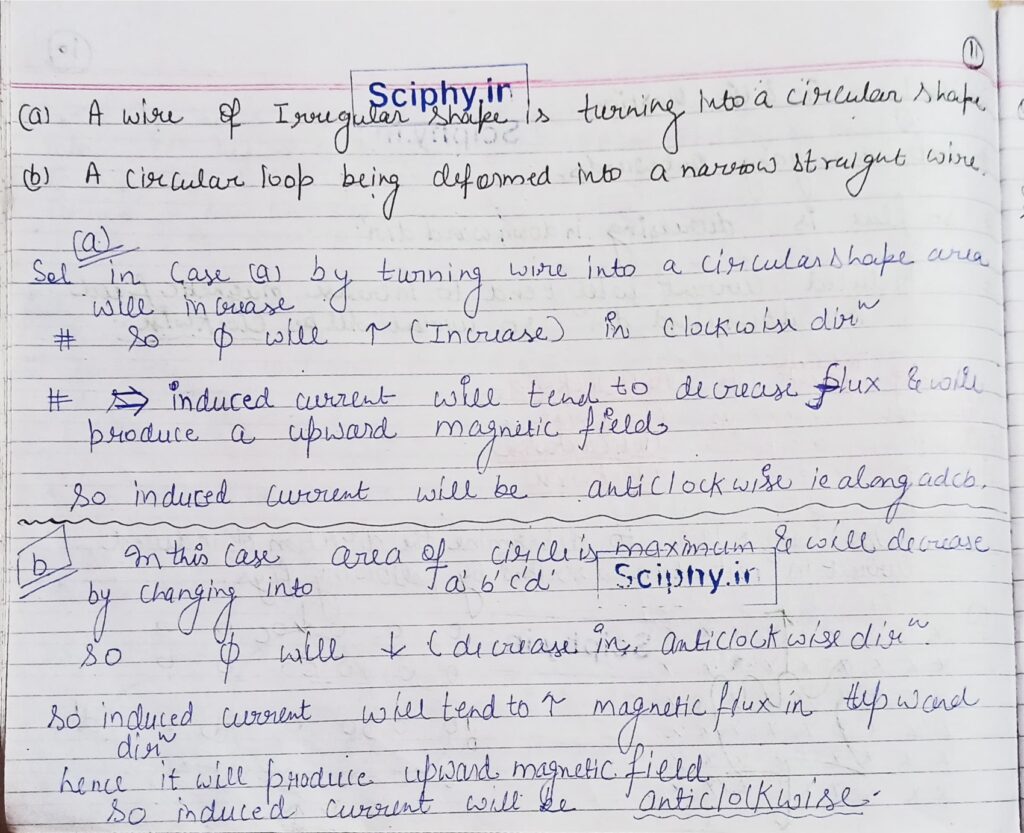 11
Sciphy.in
(a) A wire of Irregular shape is turning into a circular shape
(b) A circular loop being deformed into a narrow straight wire.
(a)
Sol in Case (a) by turning wire into a circular shape area
will increase
# So ϕ will ↑ (Increase) in clockwise dirⁿ
# ⇒ induced current will tend to decrease flux & will
produce a upward magnetic field
So induced current will be anticlockwise ie along adcb.
b In this Case area of circle is maximum & will decrease
by changing into a' b' c' d'
Sciphy.in
so ϕ will ↓ (decrease in anticlockwise dirⁿ.
So induced current will tend to ↑ magnetic flux in upward
dirⁿ
hence it will produce upward magnetic field
So induced current will be anticlockwise.